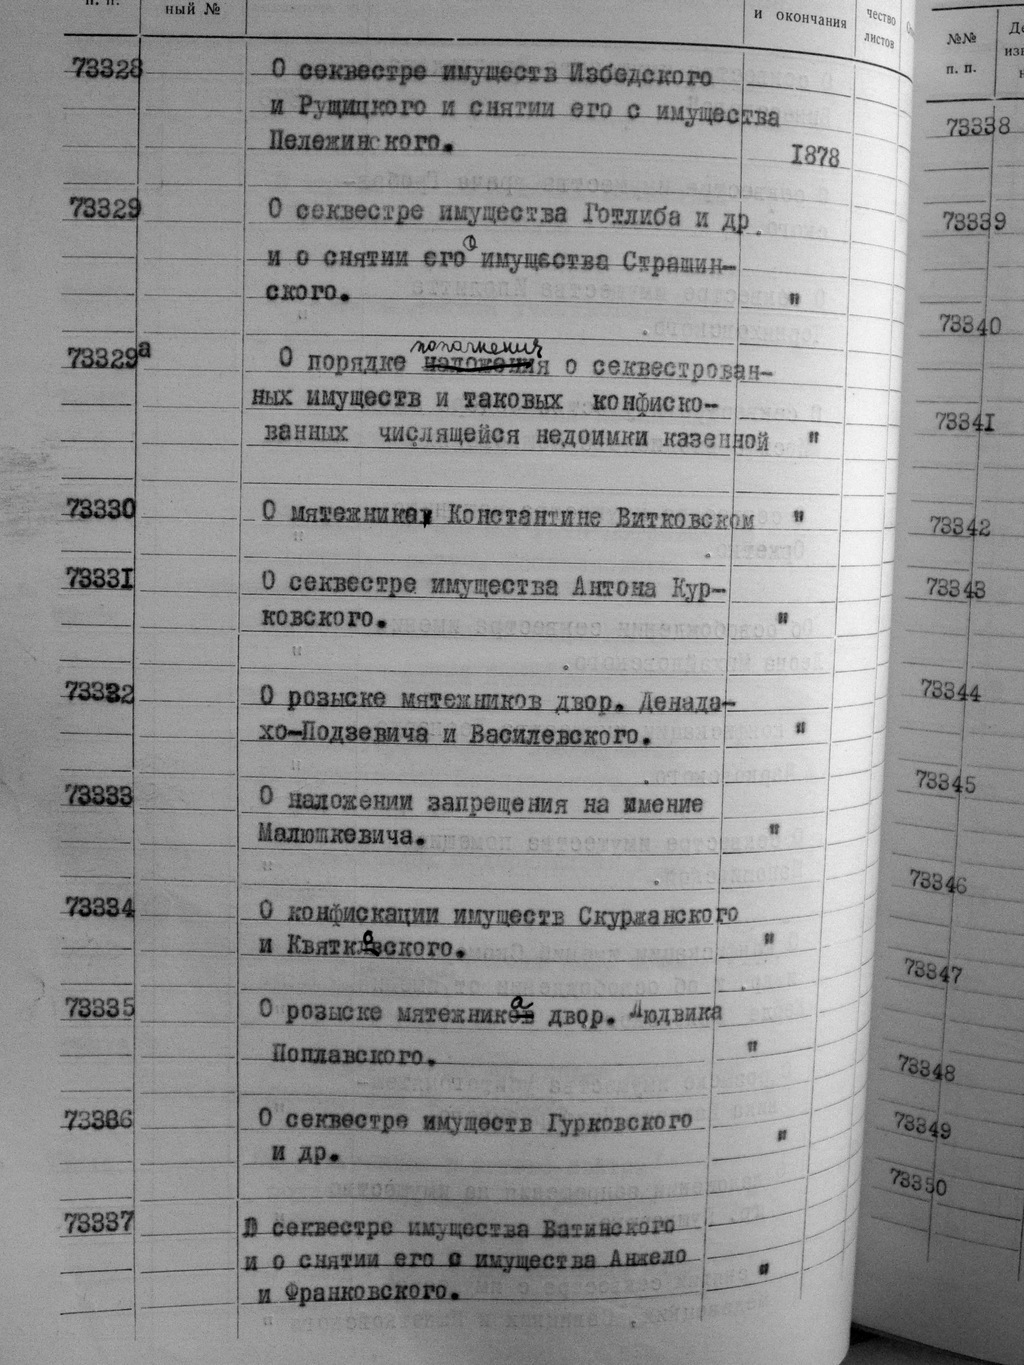 п. п.
ный №
и окончания
чество
листов
73328
О секвестре имуществ Избедского
и Рущицкого и снятии его с имущества
Пележинского.
1878
73329
О секвестре имущества Готлиба и др.
и о снятии его с имущества Страшин-
ского. "
73329а
пополнения
О порядке наложения о секвестрован-
ных имуществ и таковых конфиско-
ванных числящейся недоимки казенной "
73330
О мятежнике Константине Витковском "
73331
О секвестре имущества Антона Кур-
ковского. "
73332
О розыске мятежников двор. Денада-
хо-Подзевича и Василевского. "
73333
О наложении запрещения на имение
Малюшкевича. "
73334
О конфискации имуществ Скуржанского
и Квятковского. "
73335
О розыске мятежника двор. Людвика
Поплавского. "
73336
О секвестре имуществ Гурковского
и др. "
73337
О секвестре имущества Ватинского
и о снятии его с имущества Анжело
и Франковского. "
№№
п. п.
73338
73339
73340
73341
73342
73343
73344
73345
73346
73347
73348
73349
73350